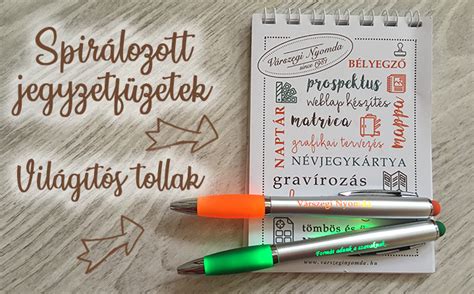 Spirálozott
jegyzetfüzetek
Világítós tollak
Várszegi Nyomda
since 1989
BÉLYEGZŐ
prospektus
weblap készítés
NAPTÁR
matrica
mappa
grafikai tervezés
NÉVJEGYKÁRTYA
gravírozás
Várszegi Nyomda
tömbös és
Formát adunk a szavaknak
www.varszeginyomda.hu